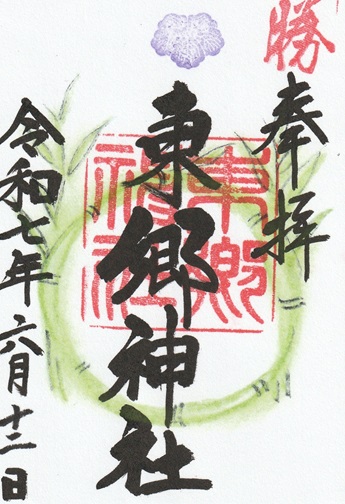 勝
奉拝
東郷神社
東郷神社
令和七年六月十二日